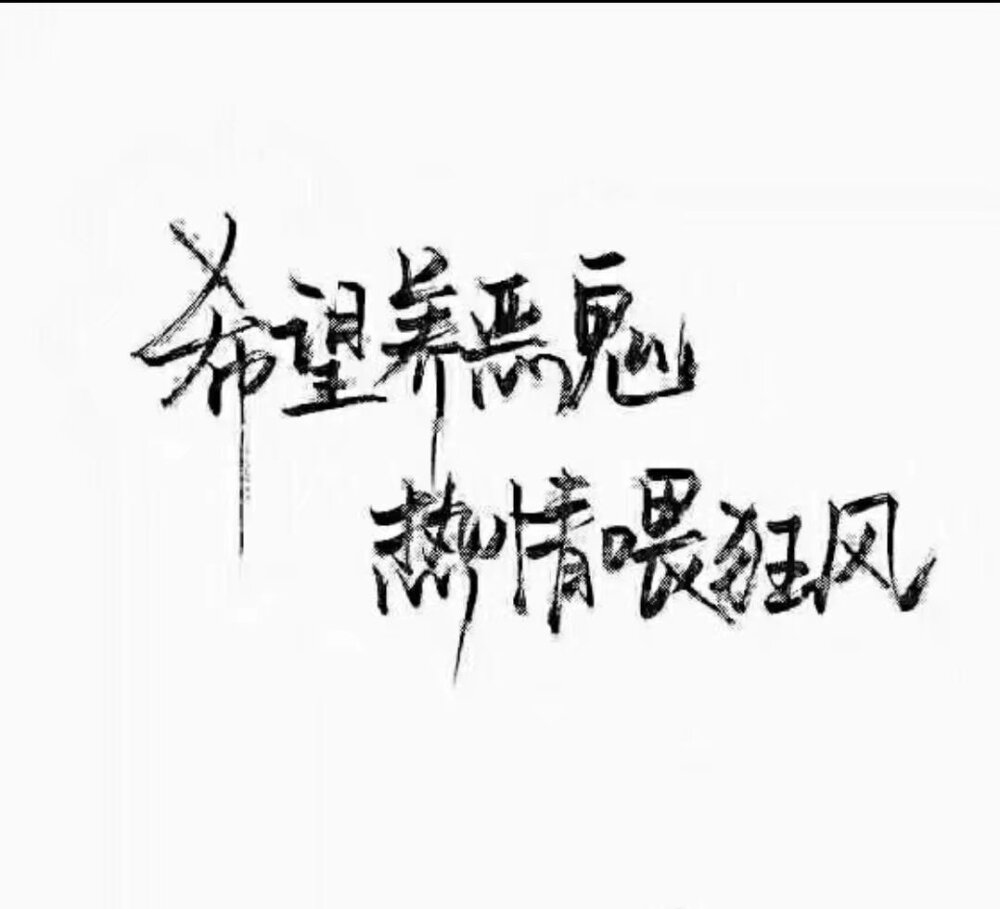 希望养恶鬼
热情喂狂风